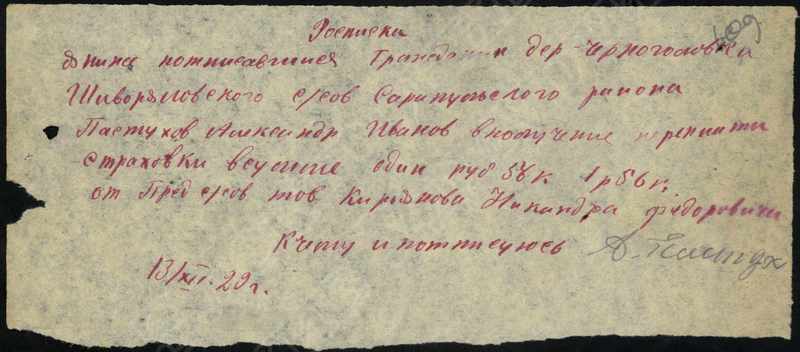 Росписка
я нина потписавшися Гражданин дер. Черноголовка
Шаворяловского с/сов Сарапульского района
Пастухов Александр Иванов в получение переплати
страховки всумме един руб 56 к 1 р 56 к.
от Пред с/сов тов Кирьянова Никандра Федоровича
К чему и потписуюсь А. Пастух
13/XII. 29 г.